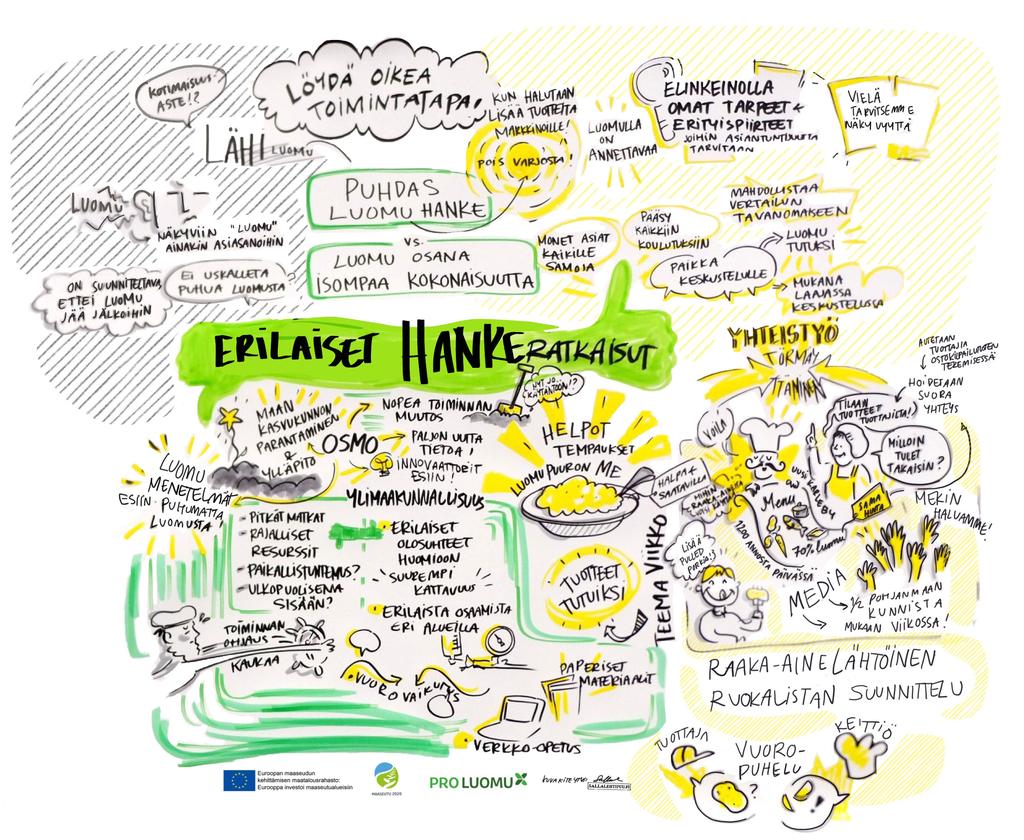 KOTIMAISUUS-
ASTE!?
LÖYDÄ OIKEA
TOIMINTATAPA!
LÄHILUOMU
KUN HALUTAAN
LISÄÄ TUOTTEITA
MARKKINOILLE!
POIS VARJOSTA!
LUOMULLA
ON
ANNETTAVAA
ELINKEINOLLA
OMAT TARPEET &
ERITYISPIIRTEET
JOIHIN ASIANTUNTIJUUTTA
TARVITAAN
VIELÄ
TARVITSEMME
NÄKYVYYTTÄ
LUOMU
NÄKYVIIN "LUOMU"
AINAKIN ASIASANOIHIN
ON SUUNNITELTAVA,
ETTEI LUOMU
JÄÄ JALKOIHIN
EI USKALLETA
PUHUA LUOMUSTA
PUHDAS
LUOMU HANKE
VS.
LUOMU OSANA
ISOMPAA KOKONAISUUTTA
MONET ASIAT
KAIKILLE
SAMOJA
PÄÄSY
KAIKKIIN
KOULUTUKSIIN
MAHDOLLISTAA
VERTAILUN
TAVANOMAISEEN
PAIKKA
KESKUSTELULLE
LUOMU
TUTUKSI
MUKANA
LAAJASSA
KESKUSTELUSSA
ERILAISET HANKERATKAISUT
MAAN
KASVUKUNNON
PARANTAMINEN
&
YLLÄPITO
OSMO
NOPEA TOIMINNAN
MUUTOS
NYT JO
KÄYTÄNTÖÖN!?
PALJON UUTTA
TIETOA!
INNOVAATTORIT
ESIIN!
LUOMU
MENETELMÄT
ESIIN PUHUMATTA
LUOMUSTA!
YLIMAAKUNNALLISUUS
- PITKÄT MATKAT
- RAJALLISET
RESURSSIT
- PAIKALLISTUNTEMUS?
- ULKOPUOLISENA
SISÄÄN?
• ERILAISET
OLOSUHTEET
HUOMIOON
SUUREMPI
KATTAVUUS
• ERILAISTA OSAAMISTA
ERI ALUEILLA
TOIMINNAN
OHJAUS
KAUKAA
VUOROVAIKUTUS
PAPERISET
MATERIAALIT
VERKKO-OPETUS
HELPOT
TEMPAUKSET
LUOMUPUURON ME
TUOTTEET
TUTUIKSI
TEEMA VIIKKO
YHTEISTYÖ
TÖRMÄY
TTÄMINEN
AUTETAAN
TUOTTAJIA
TEKEMISESSÄ
HOIDETAAN
SUORA
YHTEYS
VOILÁ
TILAAN
TUOTTEET
TUOTTAJILTA!
MILLOIN
TULET
TAKAISIN?
HALPAA
SAATAVILLA
MIHIN
RAAKA-AINEITA
VOISI KÄYTTÄÄ?
UUSI
Menu
SAMA
HINTA
MEKIN
HALUAMME!
1200 ANNOSTA PÄIVÄSSÄ
70% luomu
LISÄÄ
PULLED
PORKIA!
MEDIA
1/2 POHJANMAAN
KUNNISTA
MUKAAN VIIKOSSA!
RAAKA-AINELÄHTÖINEN
RUOKALISTAN SUUNNITTELU
TUOTTAJA
VUORO-
PUHELU
?
KEITTIÖ
Euroopan maaseudun
kehittämisen maatalousrahasto:
Eurooppa investoi maaseutualueisiin
MAASEUTU 2020
PRO LUOMU
KUVAKIRJOITUS
SALLALEHTIPUU.FI